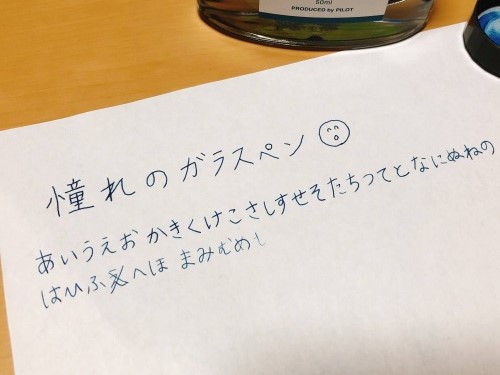 50ml
PRODUCED by PILOT
憧れのガラスペン
あいうえお かきくけこさしすせそたちつてとなにぬねの
はひふへほ まみむめも